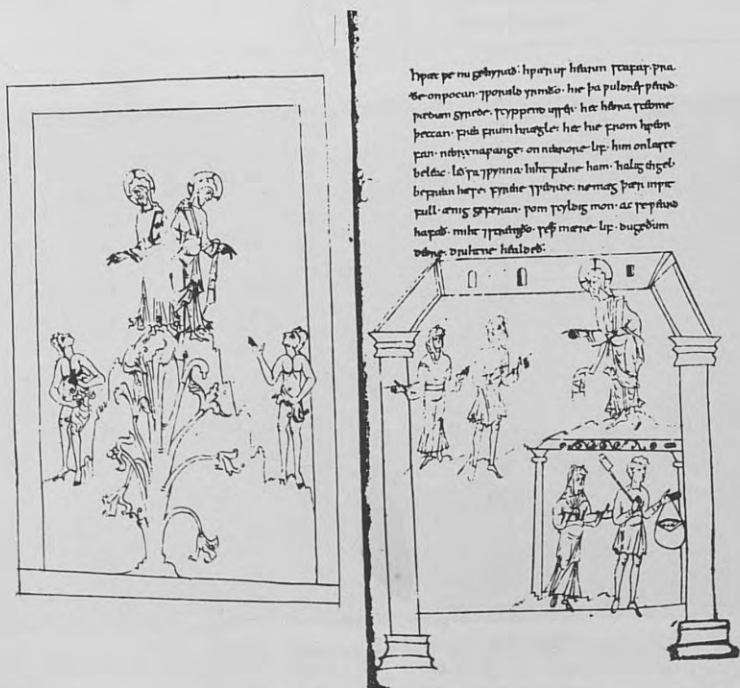 hƿæt ƿe nu gehyrað· hƿær us hearm stafas· ƿra
ðe onƿocan· ⁊ƿoruld yrmðo· hie þa ƿuldres ƿeard
ƿædum gyrede· scyppend usser· het heora sceome
þeccan· frea frum hrægle· het hie from hƿeor
fan· neorxna ƿange· on nearore lif· him on laste
beleac· liðsa ⁊ƿynna· hihtfulne ham· halig engel
be frean hæse· fyrene sƿeorde· ne mæg þær inƿit
full· ænig geferan· ƿom scyldig mon· ac se ƿeard
hafað· miht ⁊strengðo· se þ mære lif· dugeðum
deore· drihtne healdeð·